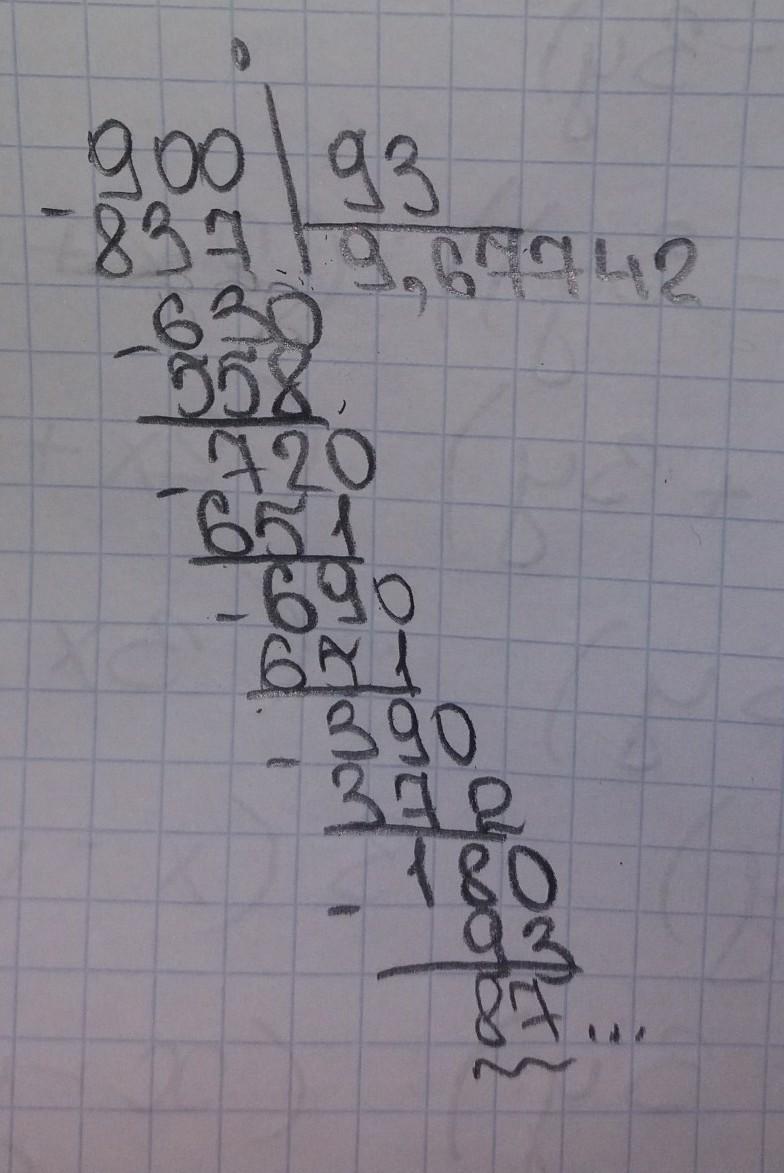 900 93
- 837 9,677742
630
- 558
720
- 651
690
- 651
390
- 372
180
- 93
87 ...